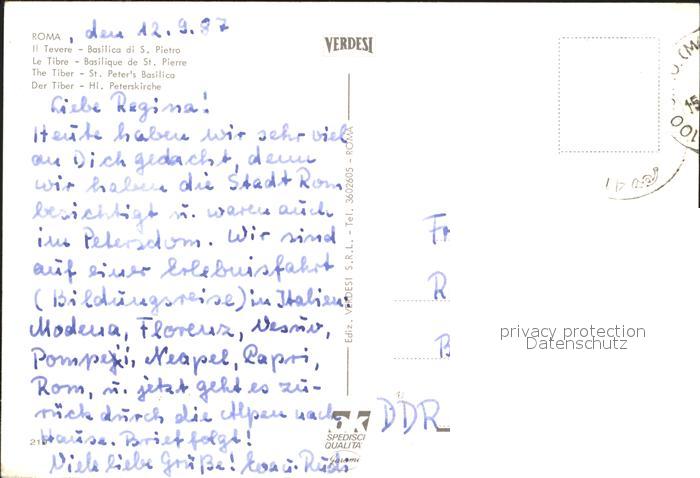 ROMA, den 12.9.87
Il Tevere - Basilica di S. Pietro
Le Tibre - Basilique de St. Pierre
The Tiber - St. Peter's Basilica
Der Tiber - Hl. Peterskirche
Liebe Regina!
Heute haben wir sehr viel
an Dich gedacht, denn
wir haben die Stadt Rom
besichtigt u. waren auch
im Petersdom. Wir sind
auf einer Erlebnisfahrt
(Bildungsreise) in Italien.
Modena, Florenz, Vesuv,
Pompeji, Neapel, Capri,
Rom, u. jetzt geht es zu-
rück durch die Alpen nach
Hause. Brief folgt!
Viele liebe Grüße! u. Rudi
21
VERDESI
Ediz. VERDESI S.R.L. - Tel. 3602605 - ROMA
SPEDISCI
QUALITA'
Fr
R
B
DDR
privacy protection
Datenschutz
00100
15